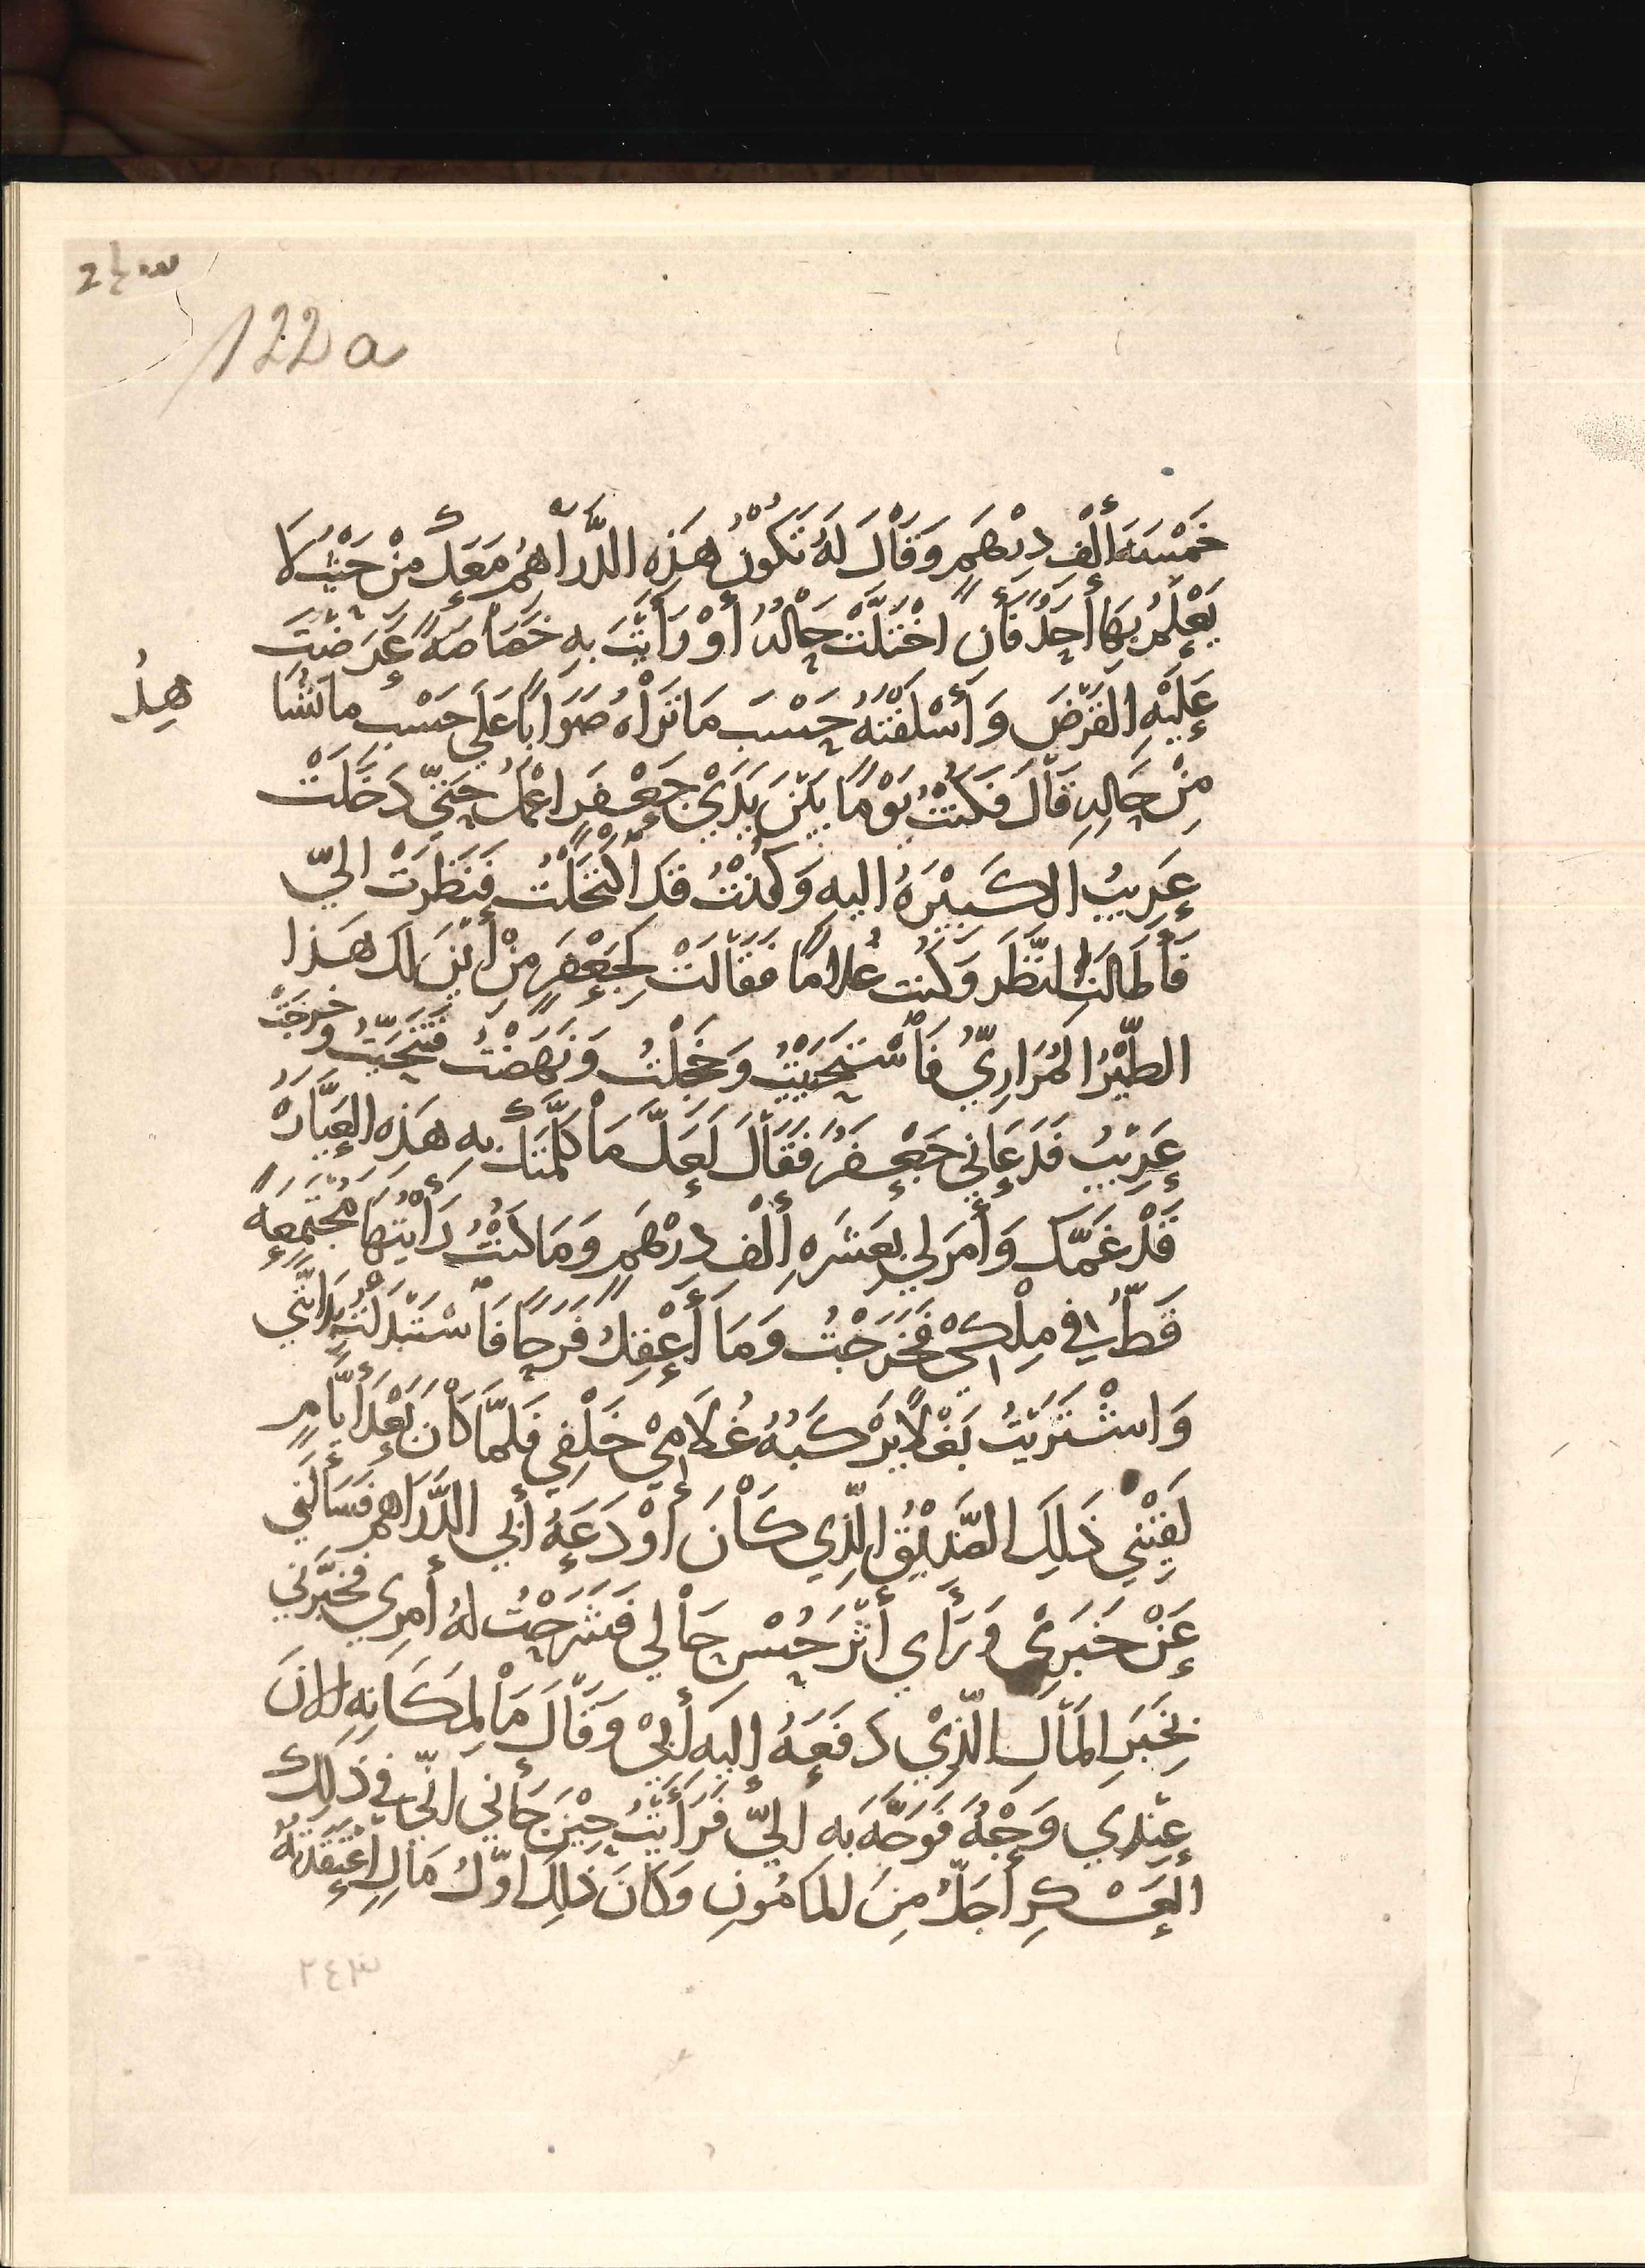 2½س
122a
خَمْسَةَ أَلْفِ دِرْهَمٍ وَقَالَ لَهُ تَكُونُ هَذِهِ الدَّرَاهِمُ مَعَكَ مِنْ حَيْثُ لَا
يَعْلَمُ بِهَا أَحَدٌ فَأَنِ اخْتَلَّتْ حَالُهُ أَوْ رَأَيْتَ بِهِ خَصَاصَةً عَرَضْتَ
عَلَيْهِ القَرْضَ وَأَسْلَفْتَهُ حَسْبَ مَا تَرَاهُ صَوَابًا عَلَى حَسْبِ مَا تَشَا
هِدُ
مِنْ حَالِهِ قَالَ فَكُنْتُ يَوْمًا بَيْنَ يَدَيْ جَعْفَرٍ اعْمَلُ حَتَّى دَخَلَتْ
عَرِيبُ الكَبِيْرَةُ اليهِ وَكُنْتُ قَدِ الْتَحَيْتُ فَنَظَرَتْ اليَّ
فَأَطَالَتِ النَّظَرَ وَكُنْتُ غُلَامًا فَقَالَتْ لِجَعْفَرٍ مِنْ أَيْنَ لَكَ هَذا
الطَّيْرُ المُرَارِيُّ فَاسْتَحْيَيْتُ وَخَجِلْتُ وَنَهَضْتُ فَتَنَحَّيْتُ وَخَرَجَتْ
عَرِيْبُ فَدَعَانِي جَعْفَرُ فَقَالَ لَعَلَّ مَا كَلَّمَتْكَ بِهِ هَذِهِ العَيَّارَةُ
قَدْ غَمَّكَ وَأَمَرَ لِي بِعَشَرَةِ أَلْفِ دِرْهَمٍ وَمَا كُنْتُ رَأَيْتُهَا مُجْتَمِعَةً
قَطُّ فِي مِلْكِي فَخَرَجْتُ وَمَا أَعْقِلُ فَرَحًا فَاسْتَبْدَلْتُ بِدَابَّتِي
وَاشْتَرَيْتُ بَغْلًا يَرْكَبُهُ غُلَامِي خَلْفِي فَلَمَّا كَانَ بَعْدَ أَيَّامٍ
لَقِيَنِي ذَلِكَ الصَّدِيْقُ الَّذِي كَانَ أَوْدَعَهُ أَبِي الدَّرَاهِمَ فَسَأَلَنِي
عَنْ خَبَرِي وَرَأَي أَثَرَ حُسْنِ حَالِي فَشَرَحْتُ لَهُ أَمْرِي فَخَبَّرَنِي
بِخَبَرِ المَالِ الَّذِيْ دَفَعَهُ إِلَيهِ أَبِيْ وَقَالَ مَا لِمَكَانِهِ الانَ
عِنْدِي وَجْهٌ فَوَجَّهَ بِهِ اليَّ فَرَأَيْتُ حِيْنَ جَانِي انِّي فِي ذَلِكَ
العَسْكَرِ أَجَلُّ مِنَ المَامُونِ وَكَانَ ذَلِكَ اوَّلُ مَالٍ اعْتَقَدْتُهُ
٢٤٣